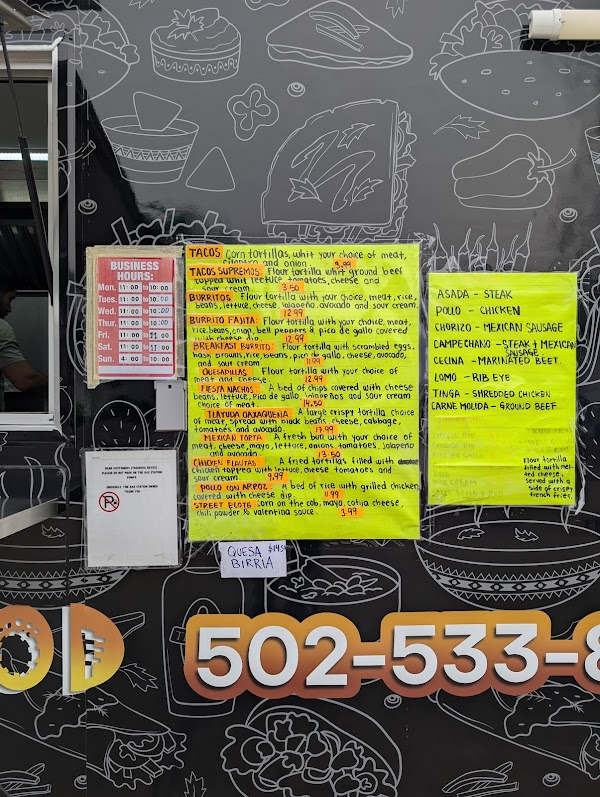 BUSINESS
HOURS:
Mon. 11:00 to 10:00
Tues. 11:00 to 10:00
Wed. 11:00 to 10:00
Thur. 11:00 to 10:00
Fri. 11:00 to 11:00
Sat. 11:00 to 11:00
Sun. 4:00 to 10:00
DEAR CUSTOMERS
PLEASE DO NOT PARK ON THE GAS STATION
PUMPS.
THANK YOU
TACOS Corn tortillas, whit your choice of meat,
cilantro and onion 3.99
TACOS SUPREMOS: Flour tortilla whit ground beef
topped whit leetuce tomatoes, cheese and
sour cream. 3.50
BURRITOS Flour tortilla with your choice, meat, rice,
beans, lettuce, cheese, jalapeño avocado and sour cream.
12.99
BURRITO FAJITA: Flour tortilla with your choice, meat,
rice, beans, onion, bell peppers & pico de gallo covered
with cheese dip 12.99
BREAKFAST BURRITO: Flour tortilla with scrambled eggs,
hash browns, rice, beans, pico de gallo, cheese, avocado,
and sour cream. 11.99
QUESADILLAS Flour tortilla with your choice of
meat and cheese. 12.99
FIESTA NACHOS A bed of chips covered with cheese
beans, lettuce, Pico de gallo, jalapeños and sour cream
choice of meat. 14.50
TLAYUDA OAXAQUEÑA A large crispy tortilla choice
of meat, spread with black beans, cheese, cabbage,
tomatoes and avocado. 17.99
MEXICAN TORTA A fresh bun with your choice of
meat, cheese, mayo, lettuce, onions, tomatoes, jalapeno
and avocado 13.50
CHICKEN FLAUTAS A fried tortillas filled with
chicken topped with lettuce, cheese tomatoes and
sour cream. 9.99
POLLO CON ARROZ: A bed of rice with grilled chicken
covered with cheese dip. 11.99
STREET ELOTE: Corn on the cob, mayo, cotija cheese,
chili powder & valentina sauce. 3.99
QUESA $14.50
BIRRIA
ASADA - STEAK
POLLO - CHICKEN
CHORIZO - MEXICAN SAUSAGE
CAMPECHANO - STEAK & MEXICAN
SAUSAGE
CECINA - MARINATED BEEF
LOMO - RIB EYE
TINGA - SHREDDED CHICKEN
CARNE MOLIDA - GROUND BEEF
Flour tortilla
filled with mel-
ted cheese,
served with a
side of crispy
french fries.
OD
502-533-8